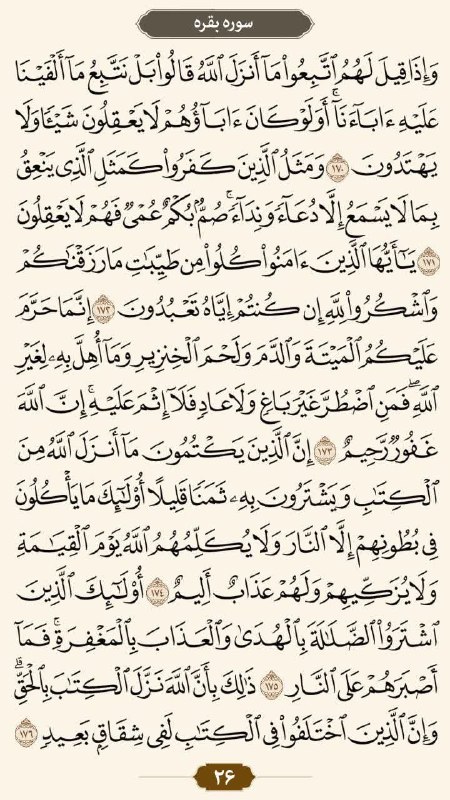 سوره بقره
وَإِذَا قِيلَ لَهُمُ ٱتَّبِعُوا۟ مَآ أَنزَلَ ٱللَّهُ قَالُوا۟ بَلْ نَتَّبِعُ مَآ أَلْفَيْنَا
عَلَيْهِ ءَابَآءَنَآ ۗ أَوَلَوْ كَانَ ءَابَآؤُهُمْ لَا يَعْقِلُونَ شَيْـًٔا وَلَا
يَهْتَدُونَ ١٧٠ وَمَثَلُ ٱلَّذِينَ كَفَرُوا۟ كَمَثَلِ ٱلَّذِى يَنْعِقُ
بِمَا لَا يَسْمَعُ إِلَّا دُعَآءً وَنِدَآءً ۚ صُمٌّۢ بُكْمٌ عُمْىٌ فَهُمْ لَا يَعْقِلُونَ
١٧١ يَـٰٓأَيُّهَا ٱلَّذِينَ ءَامَنُوا۟ كُلُوا۟ مِن طَيِّبَـٰتِ مَا رَزَقْنَـٰكُمْ
وَٱشْكُرُوا۟ لِلَّهِ إِن كُنتُمْ إِيَّاهُ تَعْبُدُونَ ١٧٢ إِنَّمَا حَرَّمَ
عَلَيْكُمُ ٱلْمَيْتَةَ وَٱلدَّمَ وَلَحْمَ ٱلْخِنزِيرِ وَمَآ أُهِلَّ بِهِۦ لِغَيْرِ
ٱللَّهِ ۖ فَمَنِ ٱضْطُرَّ غَيْرَ بَاغٍ وَلَا عَادٍ فَلَآ إِثْمَ عَلَيْهِ ۚ إِنَّ ٱللَّهَ
غَفُورٌ رَّحِيمٌ ١٧٣ إِنَّ ٱلَّذِينَ يَكْتُمُونَ مَآ أَنزَلَ ٱللَّهُ مِنَ
ٱلْكِتَـٰبِ وَيَشْتَرُونَ بِهِۦ ثَمَنًا قَلِيلًا ۙ أُو۟لَـٰٓئِكَ مَا يَأْكُلُونَ
فِى بُطُونِهِمْ إِلَّا ٱلنَّارَ وَلَا يُكَلِّمُهُمُ ٱللَّهُ يَوْمَ ٱلْقِيَـٰمَةِ
وَلَا يُزَكِّيهِمْ وَلَهُمْ عَذَابٌ أَلِيمٌ ١٧٤ أُو۟لَـٰٓئِكَ ٱلَّذِينَ
ٱشْتَرَوُا۟ ٱلضَّلَـٰلَةَ بِٱلْهُدَىٰ وَٱلْعَذَابَ بِٱلْمَغْفِرَةِ ۚ فَمَآ
أَصْبَرَهُمْ عَلَى ٱلنَّارِ ١٧٥ ذَٰلِكَ بِأَنَّ ٱللَّهَ نَزَّلَ ٱلْكِتَـٰبَ بِٱلْحَقِّ ۗ
وَإِنَّ ٱلَّذِينَ ٱخْتَلَفُوا۟ فِى ٱلْكِتَـٰبِ لَفِى شِقَاقٍۭ بَعِيدٍ ١٧٦
۲۶